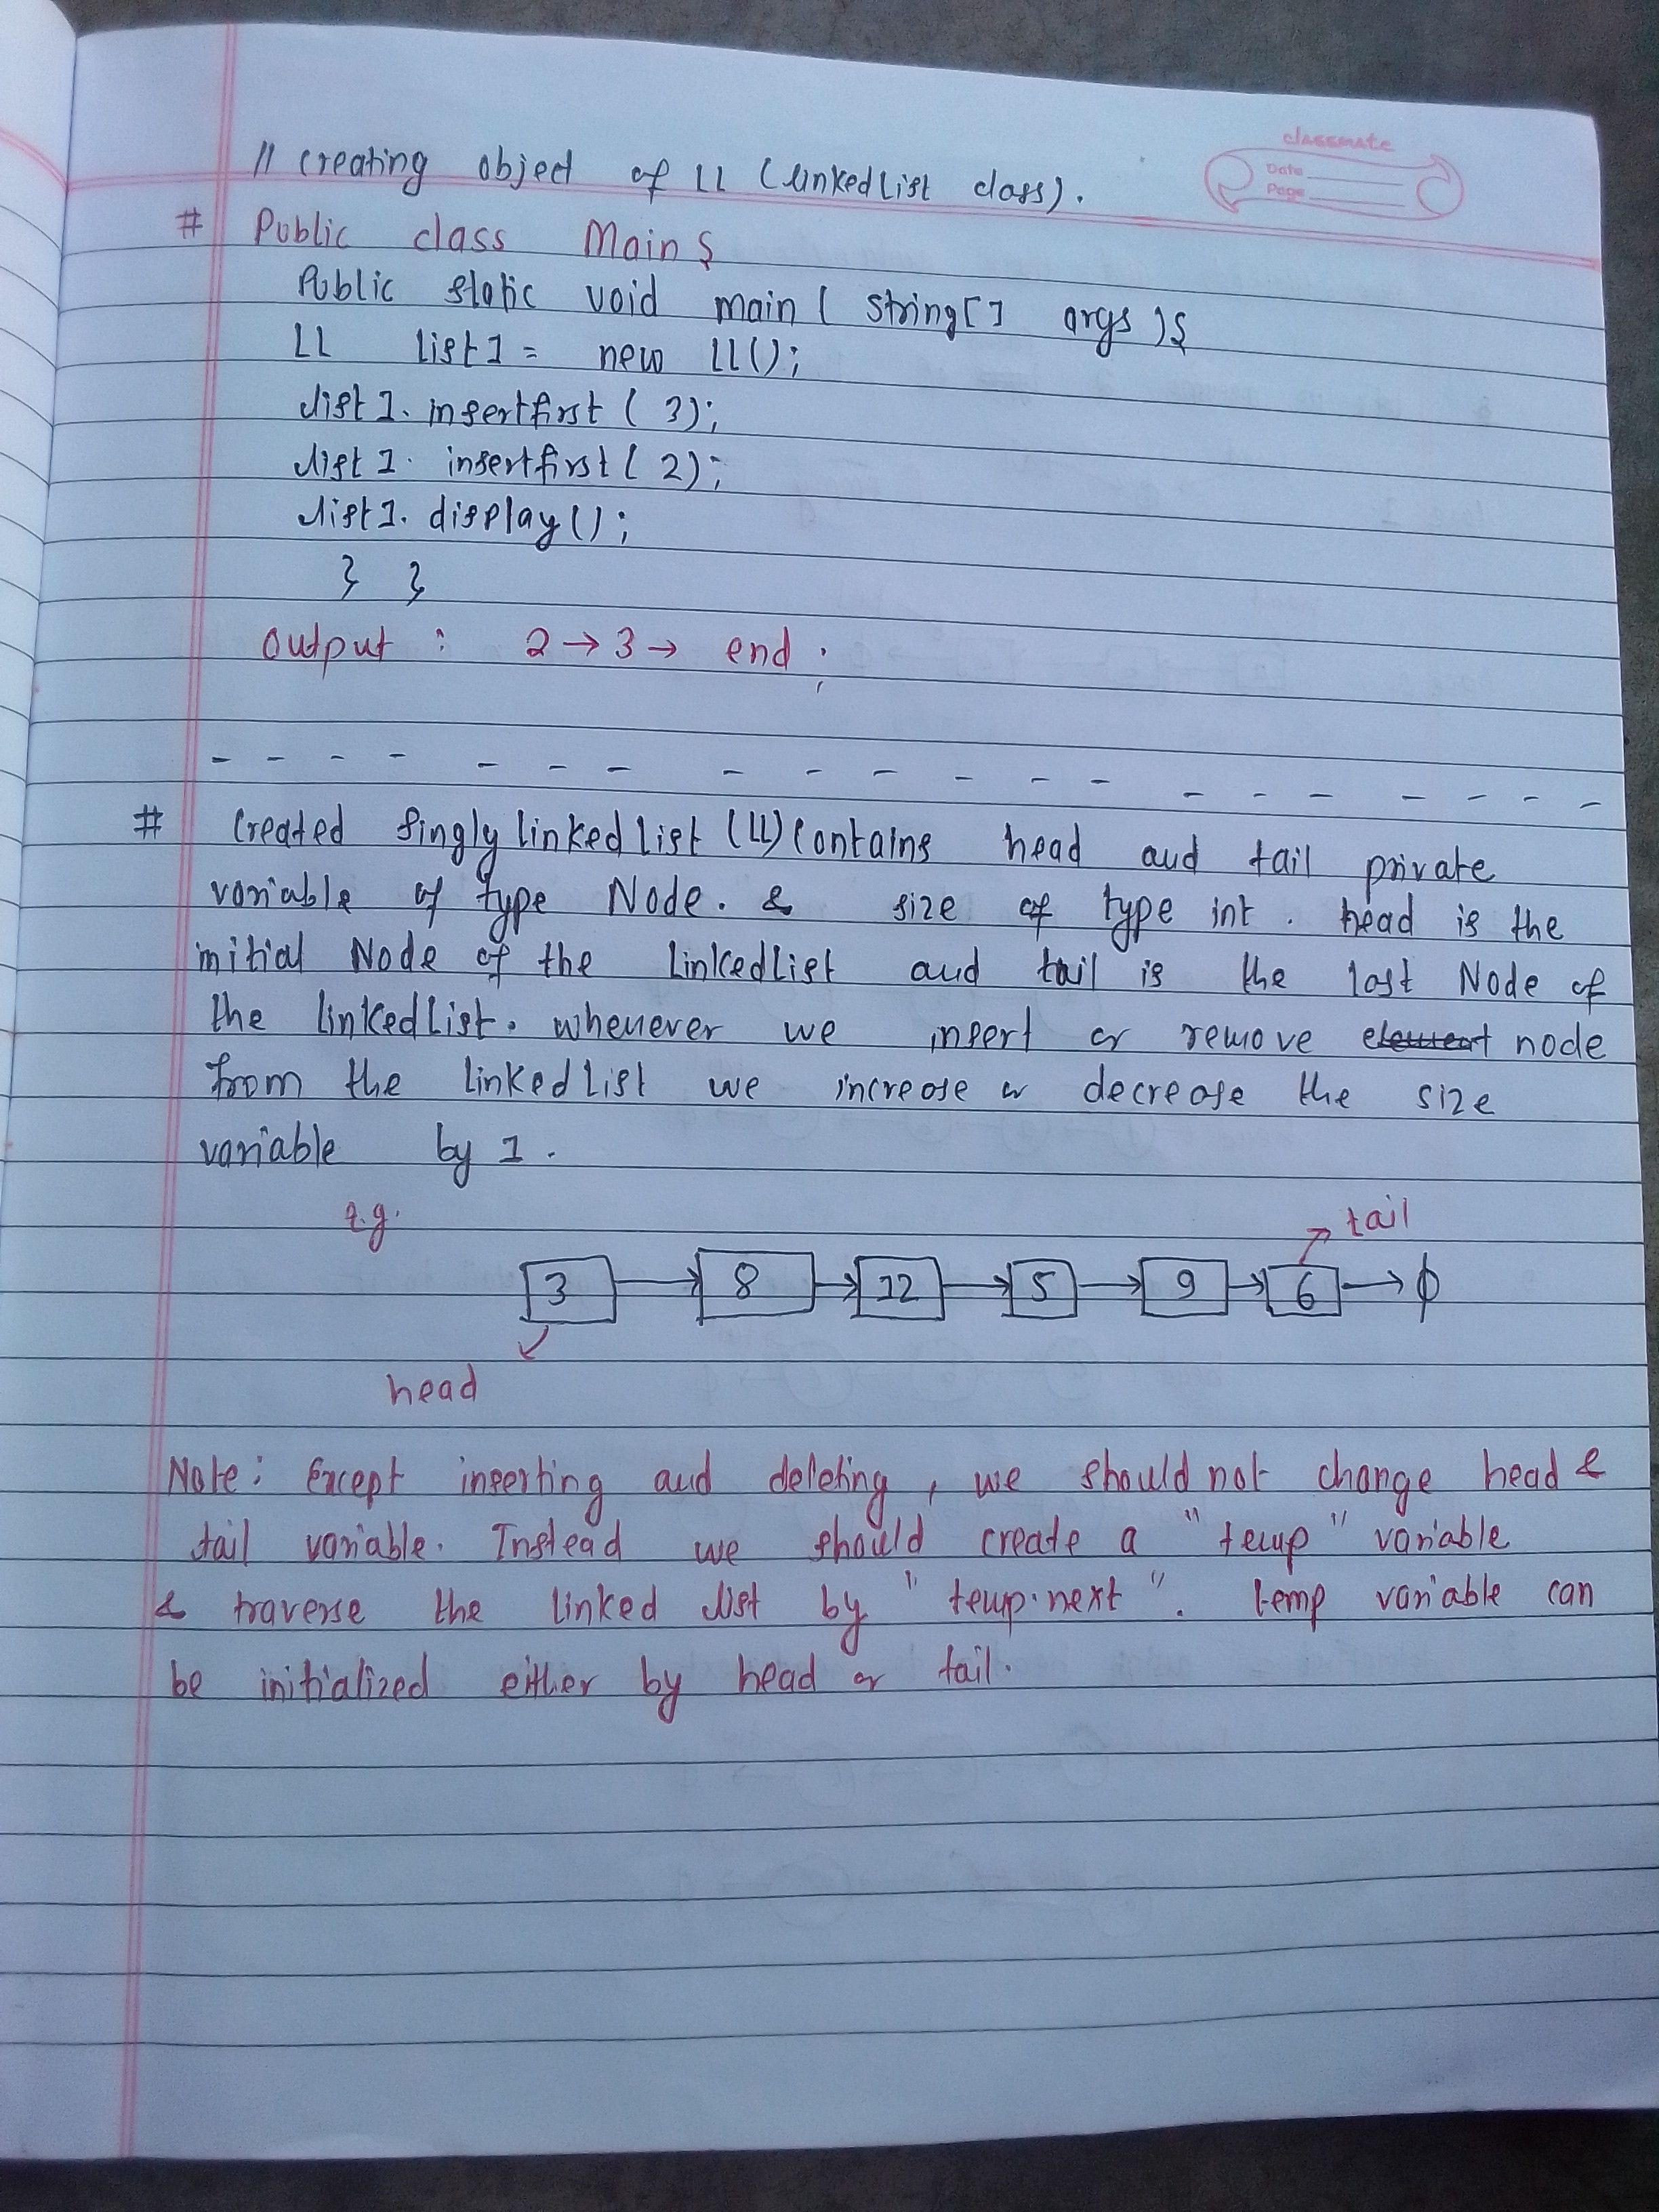 classmate
Date
Page
// Creating object of LL (LinkedList class).
# Public class Main {
Public static void main ( string[] args ){
LL list1 = new LL();
list1. insertfirst ( 3);
list1. insertfirst ( 2);
list1. display();
} }
Output : 2 → 3 → end ;
- - - - - - - - - - - - - - - - - - - -
# Created SinglyLinkedList (LL) Contains head and tail private
variable of type Node. & size of type int . head is the
initial Node of the LinkedList and tail is the last Node of
the LinkedList. whenever we insert or remove element node
from the LinkedList we increase or decrease the size
variable by 1.
e.g.
tail
3 → 8 → 12 → 5 → 9 → 6 → ϕ
head
Note: Except inserting and deleting, we should not change head &
tail variable. Instead we should create a "temp" variable
& traverse the linked list by "temp.next". temp variable can
be initialized either by head or tail.